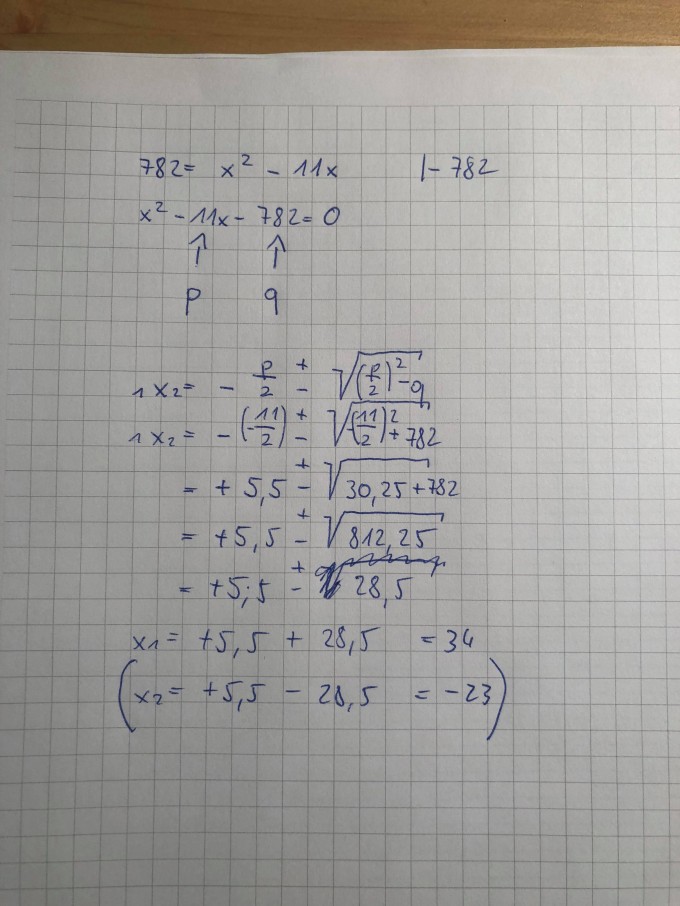 782= x² - 11x |- 782
x² - 11x - 782 = 0
↑ ↑
p q
1x2= - p/2 ± √(p/2)² - q
1x2= - (-11/2) ± √-(11/2)² + 782
= + 5,5 ± √30,25 + 782
= +5,5 ± √812,25
= +5,5 ± 28,5
x1= +5,5 + 28,5 = 34
(x2= +5,5 - 28,5 = -23)